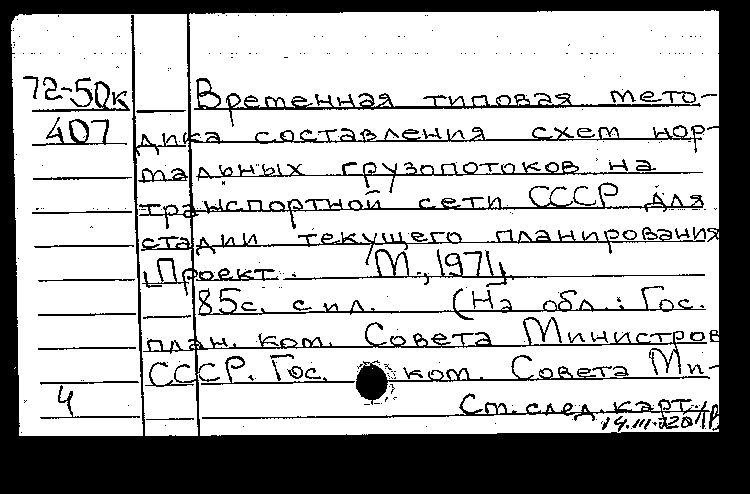 72-50к Временная типовая мето-
407 дика составления схем нор-
мальных грузопотоков на
транспортной сети СССР для
стадии текущего планирования
[Проект. М., 1971].
85с. с ил. (На обл.: Гос.
план. ком. Совета Министров
СССР. Гос. ком. Совета Ми-
4 Ст. след. карт.